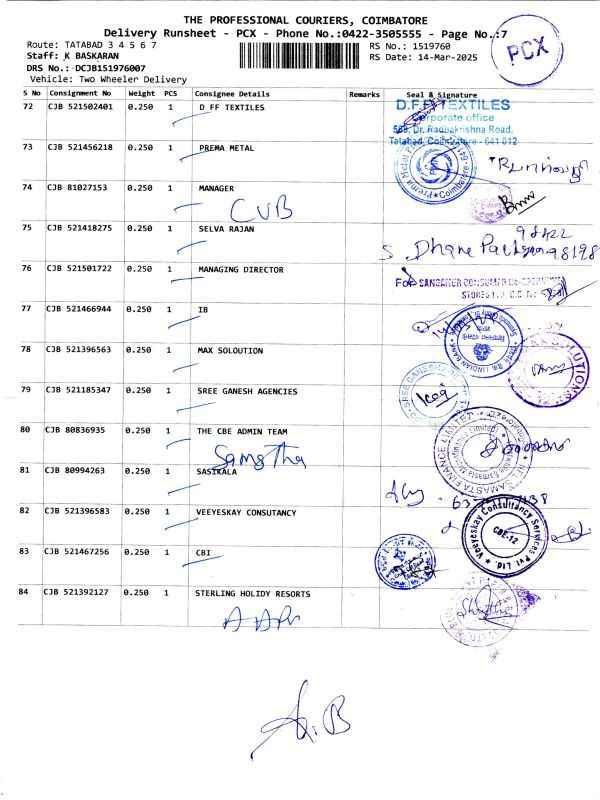 THE PROFESSIONAL COURIERS, COIMBATORE
Delivery Runsheet - PCX - Phone No.:0422-3505555 - Page No.:7
PCX
Route: TATABAD 3 4 5 6 7
RS No.: 1519760
Staff: K BASKARAN
RS Date: 14-Mar-2025
DRS No.: DCJB151976007
Vehicle: Two Wheeler Delivery
S No Consignment No Weight PCS Consignee Details Remarks Seal & Signature
72 CJB 521502401 0.250 1 D FF TEXTILES
D.F.F TEXTILES
Corporate office
568, Dr. Radhakrishna Road,
Tatabad, Coimbatore - 641 012
73 CJB 521456218 0.250 1 PREMA METAL
74 CJB 81027153 0.250 1 MANAGER
CUB
75 CJB 521418275 0.250 1 SELVA RAJAN
76 CJB 521501722 0.250 1 MANAGING DIRECTOR
77 CJB 521466944 0.250 1 IB
INDIAN BANK
78 CJB 521396563 0.250 1 MAX SOLOUTION
79 CJB 521185347 0.250 1 SREE GANESH AGENCIES
80 CJB 80836935 0.250 1 THE CBE ADMIN TEAM
Samastha
81 CJB 80994263 0.250 1 SASIKALA
82 CJB 521396583 0.250 1 VEEYESKAY CONSUTANCY
Veeyeskay Consultancy Services Pvt. Ltd.
CBE-12
83 CJB 521467256 0.250 1 CBI
84 CJB 521392127 0.250 1 STERLING HOLIDY RESORTS